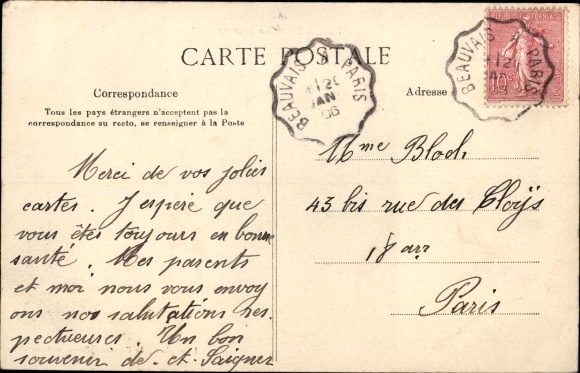 CARTE POSTALE
Correspondance
Tous les pays étrangers n'acceptent pas la
correspondance au recto, se renseigner à la Poste
Adresse
BEAUVAIS A PARIS
12
JAN
06
BEAUVAIS A PARIS
12
RÉPUBLIQUE FRANÇAISE
10
Merci de vos jolies
cartes. J'espère que
vous êtes toujours en bonne
santé. Mes parents
et moi nous vous envoy
ons nos salutations res
pectueuses. Un bon
souvenir de
Mme Bloch
43 bis rue des Cloÿs
18 arr
Paris